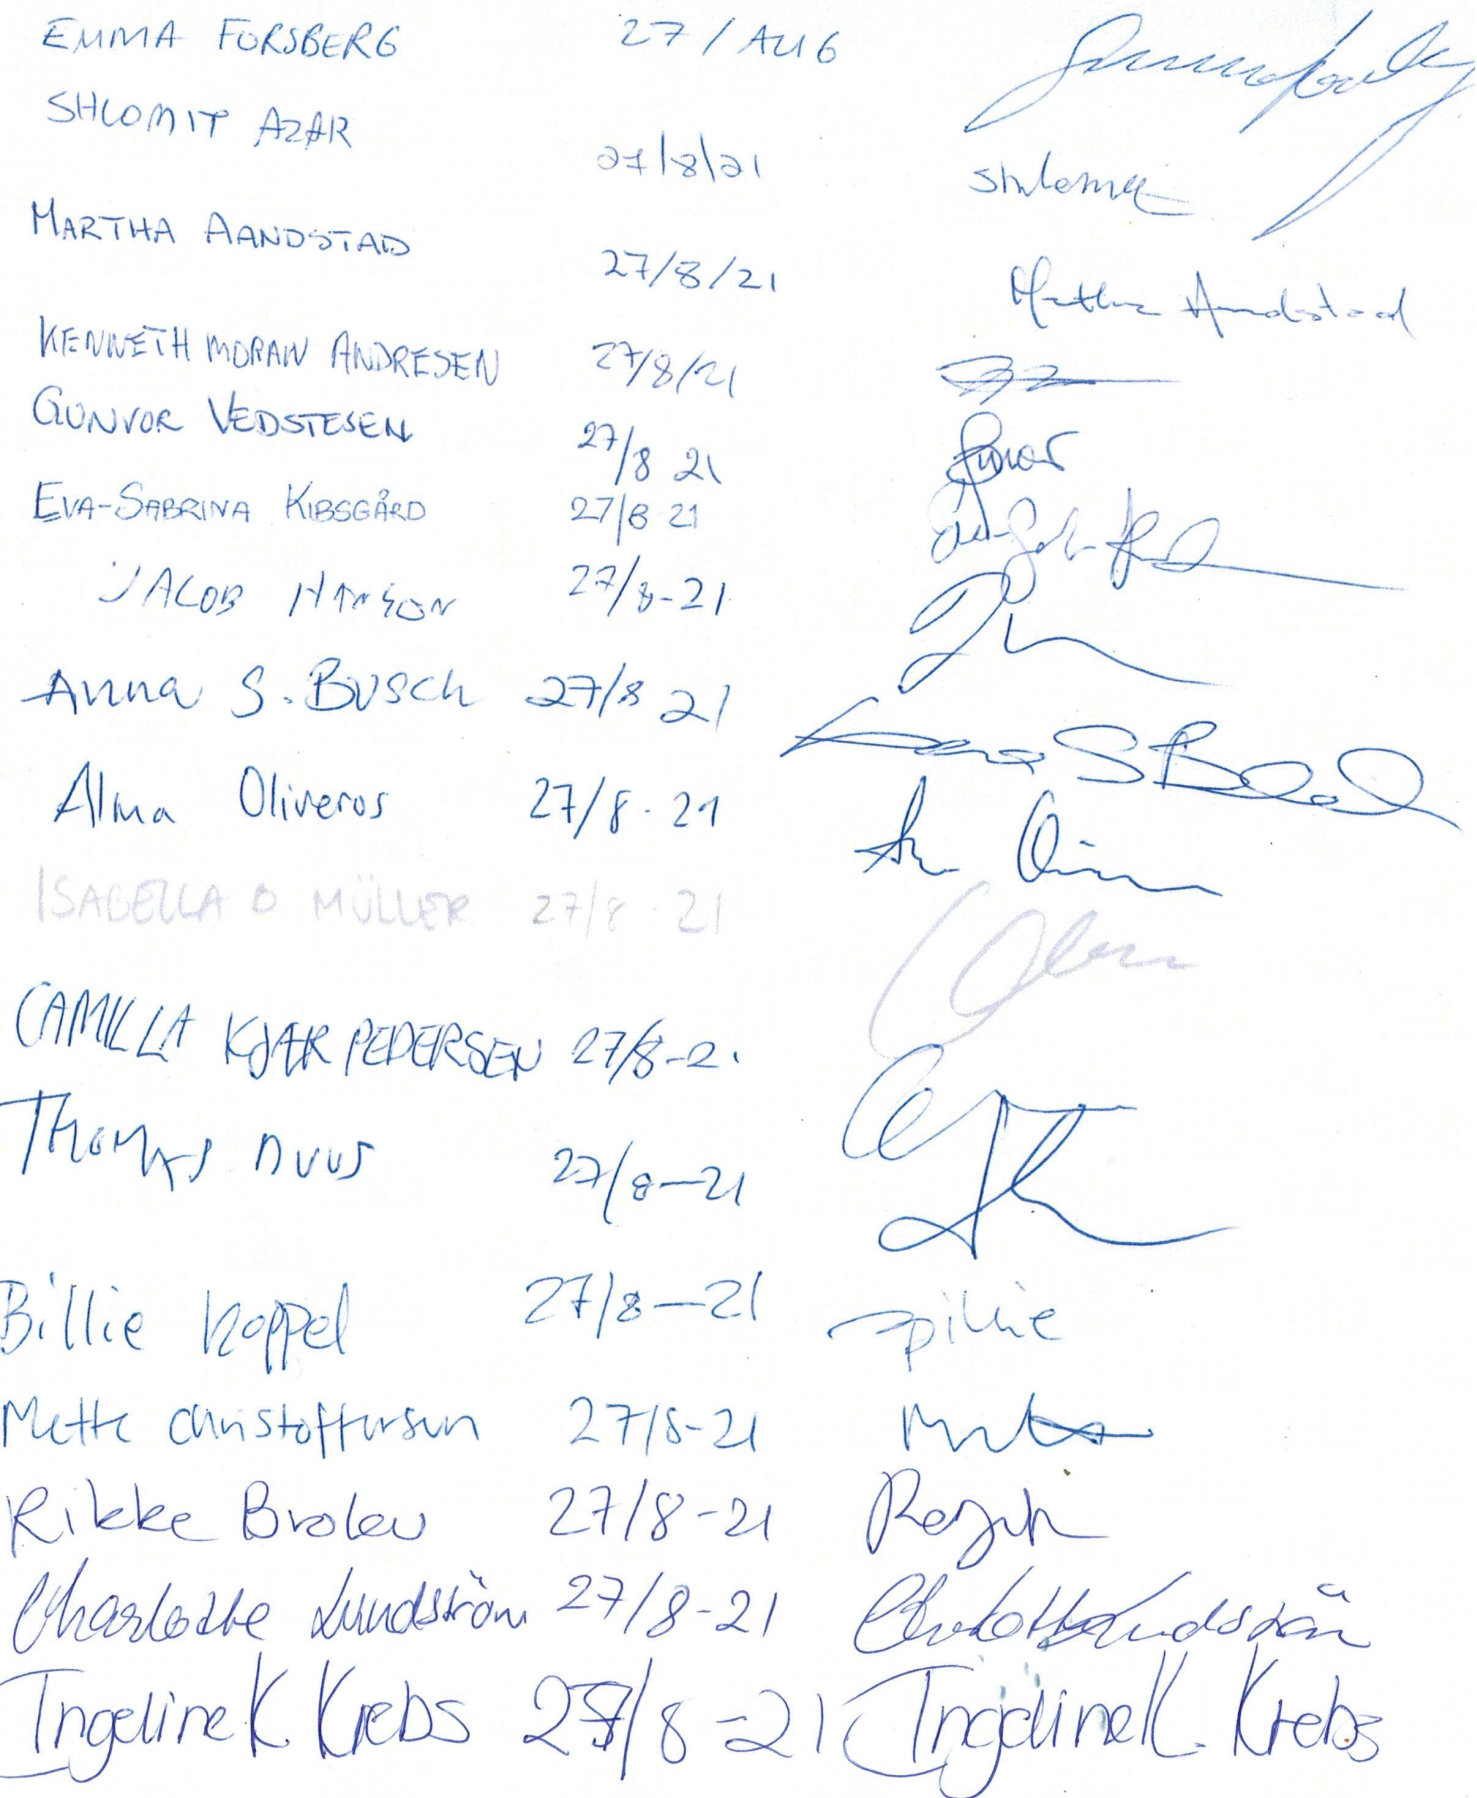 EMMA FORSBERG 27/AUG
SHLOMIT AZAR 27/8/21 Shlomit
MARTHA AANDSTAD 27/8/21 Martha Aandstad
KENNETH MORAN ANDRESEN 27/8/21
GUNVOR VEDSTESEN 27/8 21
EVA-SABRINA KIBSGÅRD 27/8 21
JACOB HANSON 27/8-21
Anna S. BUSCH 27/8 21
Alma Oliveros 27/8-21
ISABELLA O MÜLLER 27/8-21
CAMILLA KJÆR PEDERSEN 27/8-21
THOMAS DUUS 27/8-21
Billie Koppel 27/8-21 Billie
Mette Christoffersen 27/8-21
Rikke Brolev 27/8-21
Charlotte Lundström 27/8-21 Charlotte Lundström
Ingeline K. Krebs 27/8-21 Ingeline K. Krebs